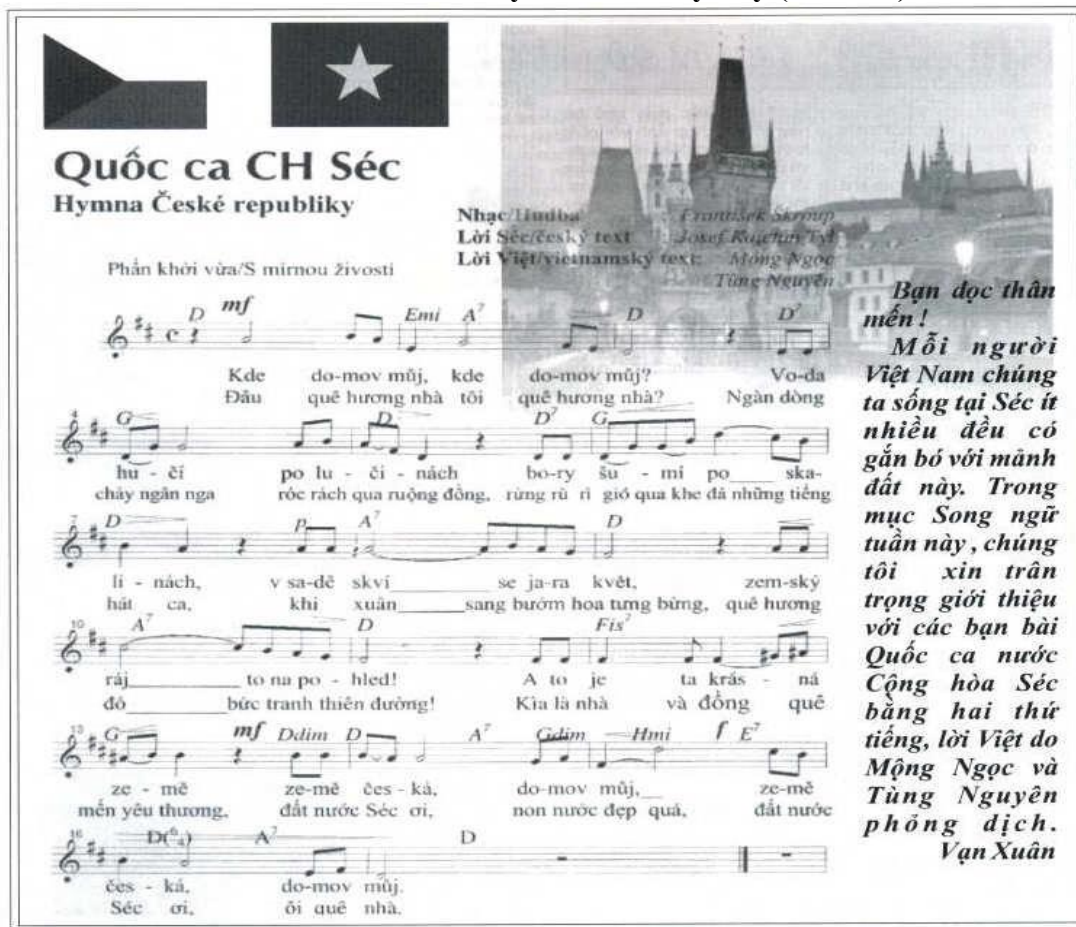 Quốc ca CH Séc
Hymna České republiky
Nhạc/Hudba : František Škroup
Lời Séc/český text : Josef Kajetán Tyl
Lời Việt/vietnamský text: Mộng Ngọc
Tùng Nguyên
Phấn khởi vừa/S mírnou živostí
D mf Emi A7 D D7
Kde do-mov můj, kde do-mov můj? Vo-da
Đâu quê hương nhà tôi quê hương nhà? Ngàn dòng
4 G D D7 G
hu - čí po lu - či - nách bo-ry šu - mí po___ ska-
chảy ngân nga róc rách qua ruộng đồng, rừng rù rì gió qua khe đá những tiếng
7 D p A7 D
li - nách, v sa-dě skví___ se ja-ra květ, zem-ský
hát ca, khi xuân___ sang bướm hoa tưng bừng, quê hương
10 A7 D Fis7
ráj___ to na po - hled! A to je ta krás - ná
đó___ bức tranh thiên đường! Kìa là nhà và đồng quê
13 G mf Ddim D A7 Gdim Hmi f E7
ze - mě ze-mě čes - ká, do-mov můj,__ ze-mě
mến yêu thương, đất nước Séc ơi, non nước đẹp quá, đất nước
16 D(6/4) A7 D
čes - ká, do-mov můj.
Séc ơi, ôi quê nhà.
Bạn đọc thân
mến !
Mỗi người
Việt Nam chúng
ta sống tại Séc ít
nhiều đều có
gắn bó với mảnh
đất này. Trong
mục Song ngữ
tuần này , chúng
tôi xin trân
trọng giới thiệu
với các bạn bài
Quốc ca nước
Cộng hòa Séc
bằng hai thứ
tiếng, lời Việt do
Mộng Ngọc và
Tùng Nguyên
phỏng dịch.
Vạn Xuân